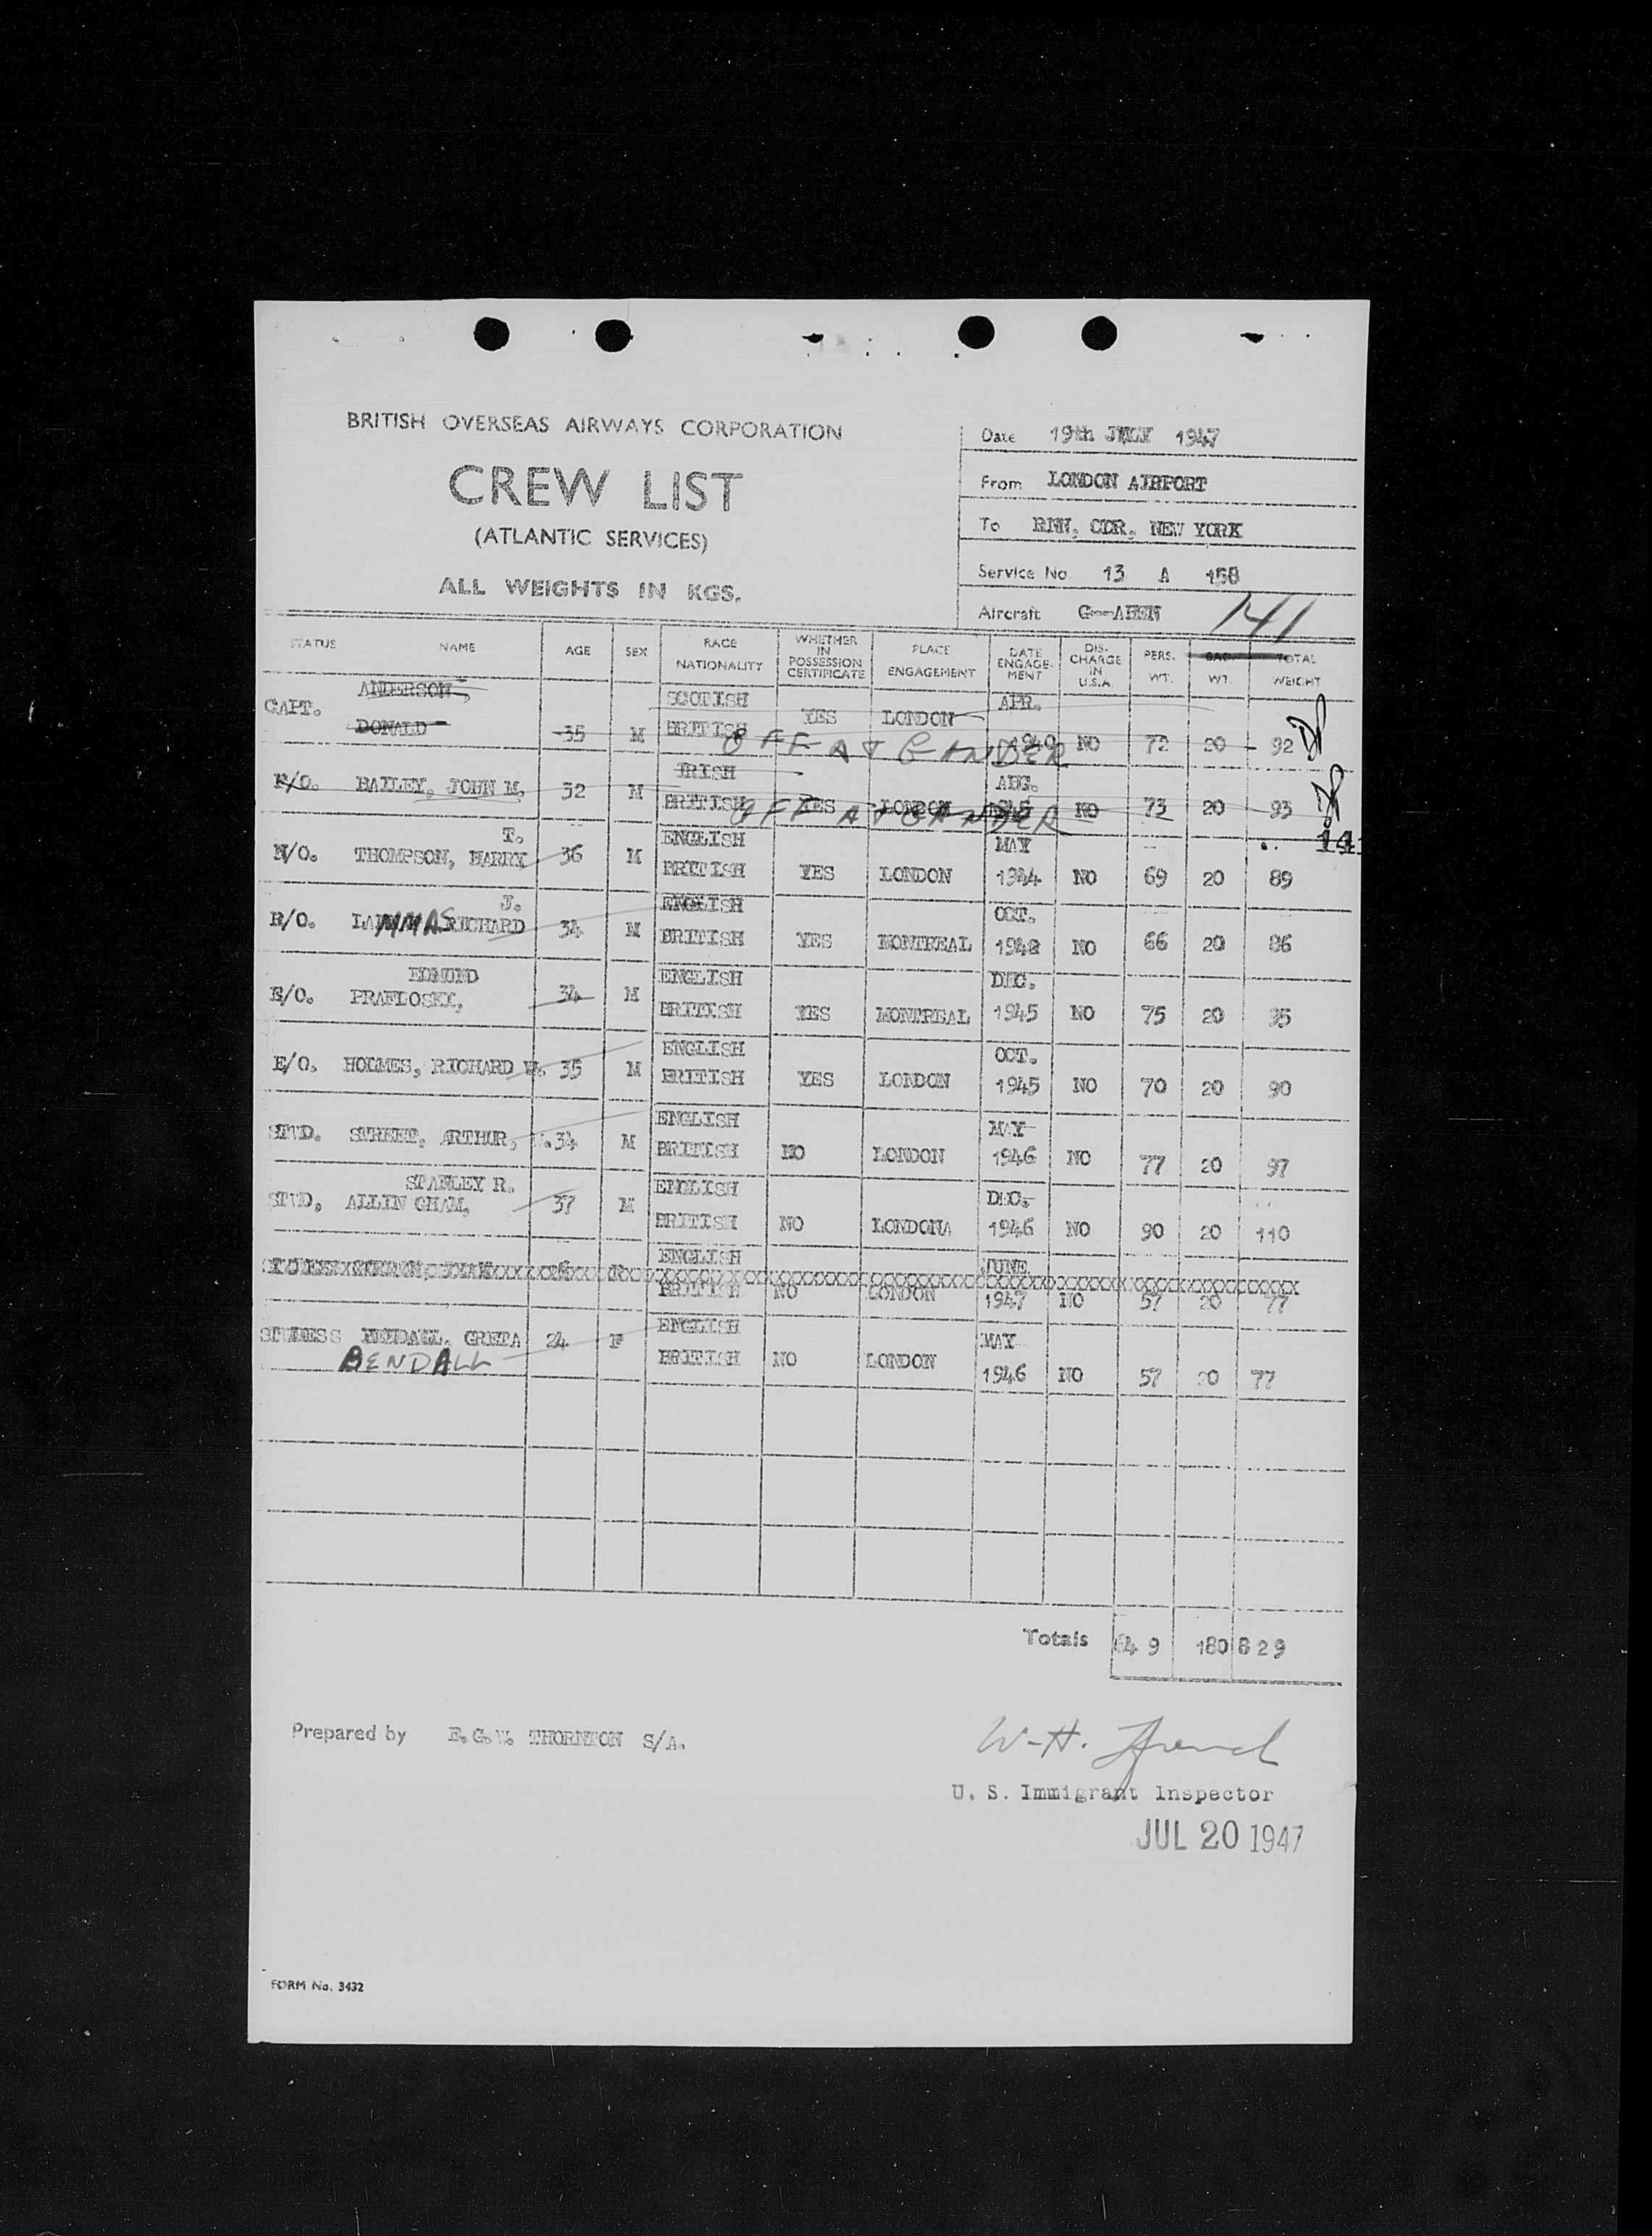 BRITISH OVERSEAS AIRWAYS CORPORATION
CREW LIST
(ATLANTIC SERVICES)
ALL WEIGHTS IN KGS.
Date 19th JULY 1947
From LONDON AIRPORT
To RNN, CDR, NEW YORK
Service No 13 A 158
Aircraft
141
STATUS NAME AGE SEX RACE NATIONALITY WHETHER IN POSSESSION CERTIFICATE PLACE ENGAGEMENT DATE ENGAGE- MENT DIS- CHARGE IN U.S.A. PERS. WT. BAG. WT. TOTAL WEIGHT
ANDERSON, SCOTISH APR.
CAPT. DONALD 35 M BRITISH YES LONDON 1940 NO 72 20 92
OFF AT GANDER
IRISH AUG.
F/O. BAILEY, JOHN M. 32 M BRITISH YES LONDON NO 73 20 93
OFF AT GANDER
141
T. ENGLISH MAY
N/O. THOMPSON, HARRY 36 M BRITISH YES LONDON 1944 NO 69 20 89
J. ENGLISH OCT.
R/O. LAMMAS RICHARD 34 M BRITISH YES MONTREAL NO 66 20 86
EDMUND ENGLISH DEC.
E/O. 34 M BRITISH YES MONTREAL 1945 NO 75 20 95
ENGLISH OCT.
E/O. HOLMES, RICHARD W. 35 M BRITISH YES LONDON 1945 NO 70 20 90
ENGLISH MAY
STWD. STREET, ARTHUR, 34 M BRITISH NO LONDON 1946 NO 77 20 97
STANLEY R. ENGLISH DEC.
STWD. ALLIN GHAM, 37 M BRITISH NO LONDONA 1946 NO 90 20 110
ENGLISH JUNE
BRITISH NO LONDON 1947 NO 57 20 77
ENGLISH MAY
STWDESS GRETA 24 F BRITISH NO LONDON 1946 NO 57 20 77
BENDALL
Totals 649 180 829
Prepared by E.G.W. THORNTON S/A.
W-H. French
U. S. Immigrant Inspector
JUL 20 1947
FORM No. 3432